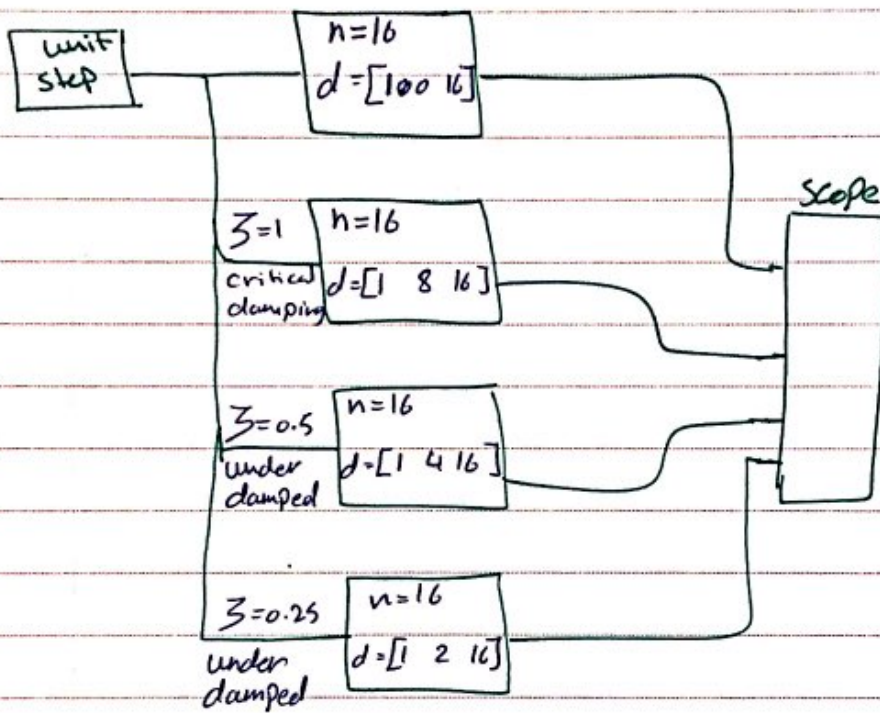 unit
step
n=16
d=[100 16]
Scope
ζ=1
critical
damping
n=16
d=[1 8 16]
ζ=0.5
under
damped
n=16
d=[1 4 16]
ζ=0.25
under
damped
n=16
d=[1 2 16]